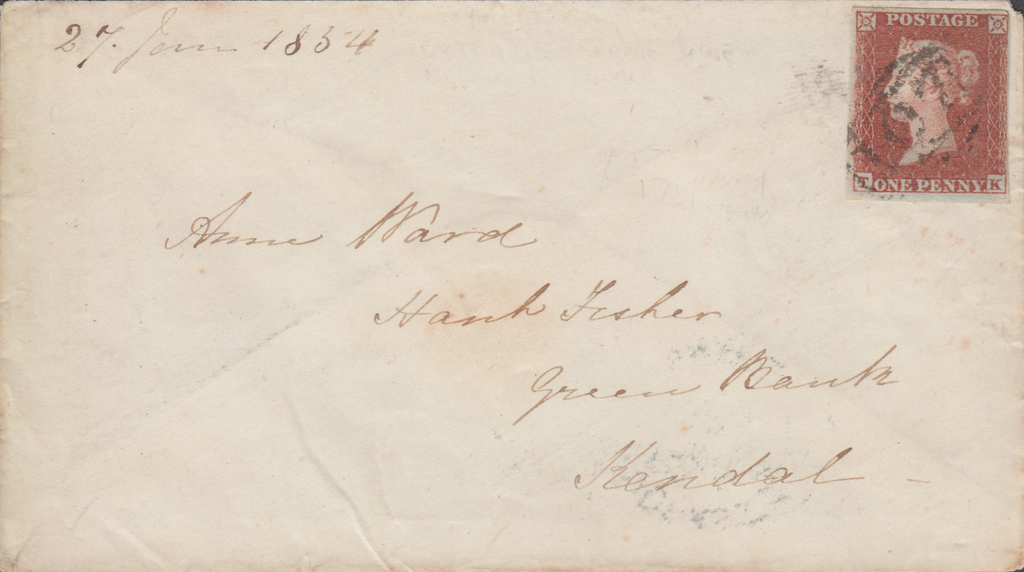 27. Jan 1854
POSTAGE
ONE PENNY K
Anne Ward
Hanh Fisher
Green Bank
Kendal